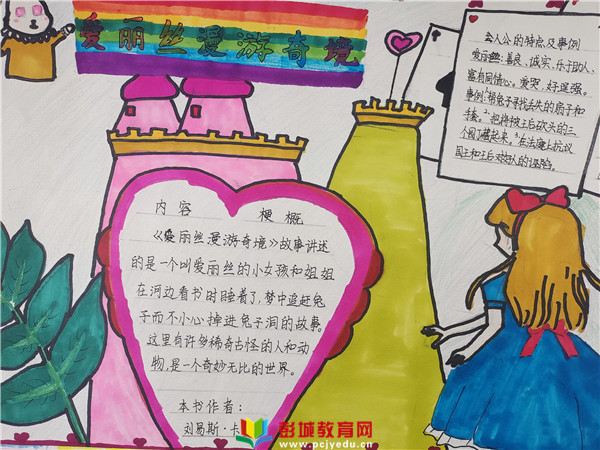 爱丽丝漫游奇境
主人公的特点及事例
爱丽丝:善良、诚实、乐于助人、
富有同情心。爱哭,好逞强。
事例:¹帮兔子寻找丢失的扇子和
手套。²把将被王后砍头的三
个园丁藏起来。³在法庭上抗议
国王和王后对别人的诬陷。
内容 梗概
《爱丽丝漫游奇境》故事讲述
的是一个叫爱丽丝的小女孩和姐姐
在河边看书时睡着了,梦中追赶兔
子而不小心掉进兔子洞的故事。
这里有许多稀奇古怪的人和动
物,是一个奇妙无比的世界。
本书作者:
刘易斯·卡
彭城教育网
www.pcjyedu.cn